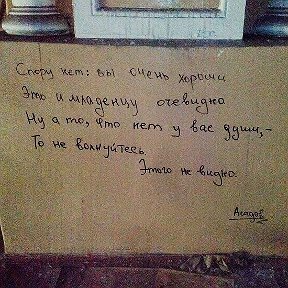 Спору нет: вы очень хороши
Это и младенцу очевидно
Ну а то, что нет у вас души, –
То не волнуйтесь
Этого не видно.
Асадов